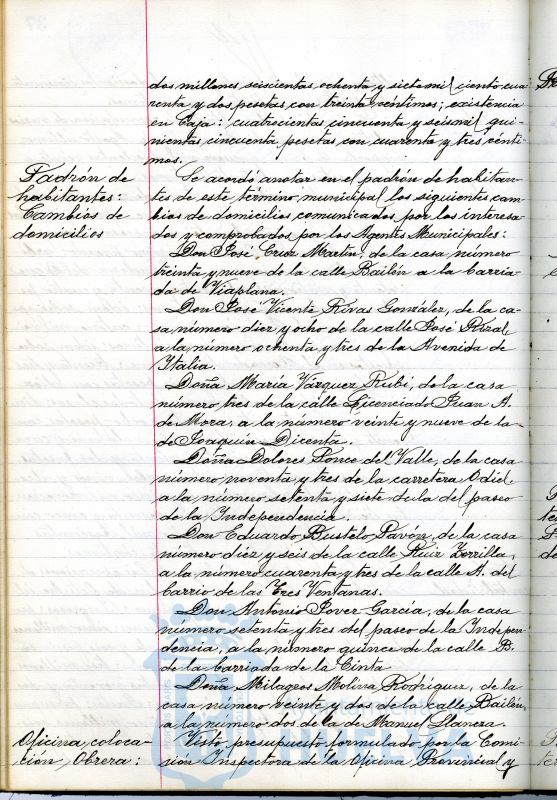 dos millones seiscientas ochenta y siete mil ciento cua
renta y dos pesetas con treinta céntimos; existencia
en Caja: cuatrocientas cincuenta y seis mil qui-
nientas cincuenta pesetas con cuarenta y tres cénti
mos.
Padrón de
habitantes:
Cambios de
domicilios
Se acordó anotar en el padrón de habitan-
tes de este término municipal los siguientes cam
bios de domicilios comunicados por los interesa-
dos y comprobados por los Agentes Municipales:
Don José Cruz Martín, de la casa número
treinta y nueve de la calle Bailén a la barria-
da de Viaplana.
Don José Vicente Rivas González, de la ca-
sa número diez y ocho de la calle José
a la número ochenta y tres de la Avenida de
Italia.
Doña María Vázquez Rubí, de la casa
número tres de la calle Licenciado Juan A.
de Mora, a la número veinte y nueve de la
de Joaquín Dicenta.
Doña Dolores Ponce del Valle, de la casa
número noventa y tres de la carretera Odiel
a la número setenta y siete de la del paseo
de la Independencia.
Don Eduardo Bustelo Pavón, de la casa
número diez y seis de la calle Ruiz Zorrilla,
a la número cuarenta y tres de la calle A. del
barrio de las Tres Ventanas.
Don Antonio Jover García, de la casa
número setenta y tres del paseo de la Indepen-
dencia, a la número quince de la calle B.
de la barriada de la Cinta
Doña Milagros Molina Rodríguez, de la
casa número veinte y dos de la calle Bailén,
a la número dos de la de Manuel Llanera.
Oficina coloca-
ción Obrera:
Visto presupuesto formulado por la Comi-
sión Inspectora de la Oficina Provincial y
HUELVA